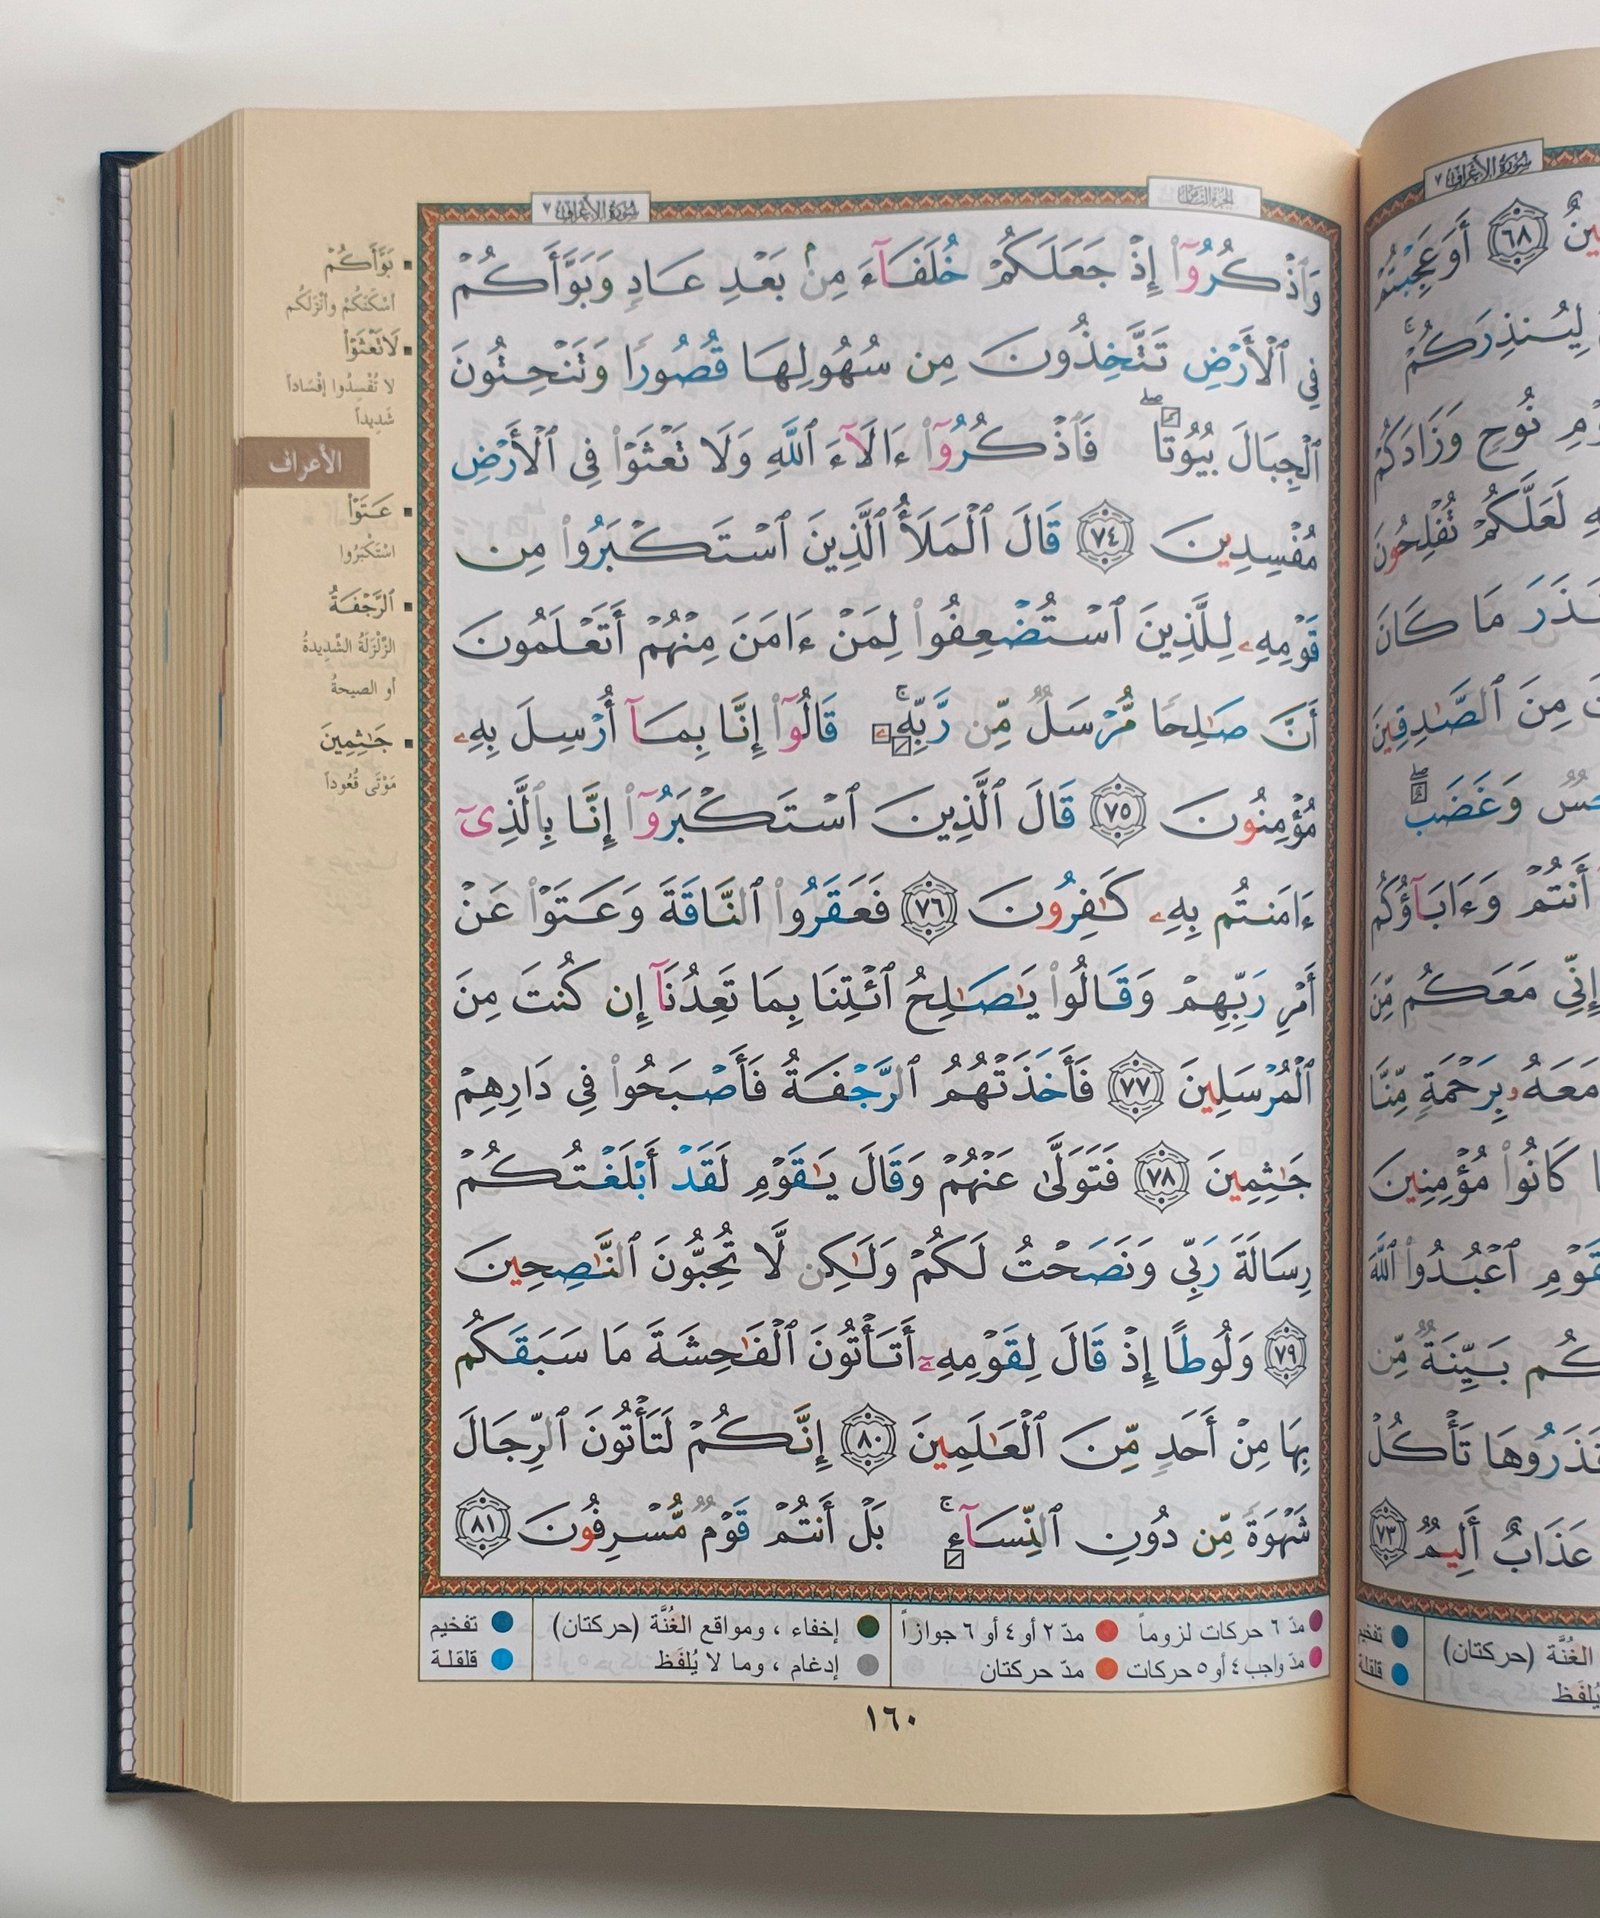 سورة الأعراف ٧
الجزء الثامن
وَٱذْكُرُوٓا۟ إِذْ جَعَلَكُمْ خُلَفَآءَ مِنۢ بَعْدِ عَادٍ وَبَوَّأَكُمْ
فِى ٱلْأَرْضِ تَتَّخِذُونَ مِن سُهُولِهَا قُصُورًا وَتَنْحِتُونَ
ٱلْجِبَالَ بُيُوتًا ۖ فَٱذْكُرُوٓا۟ ءَالَآءَ ٱللَّهِ وَلَا تَعْثَوْا۟ فِى ٱلْأَرْضِ
مُفْسِدِينَ ٧٤ قَالَ ٱلْمَلَأُ ٱلَّذِينَ ٱسْتَكْبَرُوا۟ مِن
قَوْمِهِۦ لِلَّذِينَ ٱسْتُضْعِفُوا۟ لِمَنْ ءَامَنَ مِنْهُمْ أَتَعْلَمُونَ
أَنَّ صَـٰلِحًا مُّرْسَلٌ مِّن رَّبِّهِۦ ۚ قَالُوٓا۟ إِنَّا بِمَآ أُرْسِلَ بِهِۦ
مُؤْمِنُونَ ٧٥ قَالَ ٱلَّذِينَ ٱسْتَكْبَرُوٓا۟ إِنَّا بِٱلَّذِىٓ
ءَامَنتُم بِهِۦ كَـٰفِرُونَ ٧٦ فَعَقَرُوا۟ ٱلنَّاقَةَ وَعَتَوْا۟ عَنْ
أَمْرِ رَبِّهِمْ وَقَالُوا۟ يَـٰصَـٰلِحُ ٱئْتِنَا بِمَا تَعِدُنَآ إِن كُنتَ مِنَ
ٱلْمُرْسَلِينَ ٧٧ فَأَخَذَتْهُمُ ٱلرَّجْفَةُ فَأَصْبَحُوا۟ فِى دَارِهِمْ
جَـٰثِمِينَ ٧٨ فَتَوَلَّىٰ عَنْهُمْ وَقَالَ يَـٰقَوْمِ لَقَدْ أَبْلَغْتُكُمْ
رِسَالَةَ رَبِّى وَنَصَحْتُ لَكُمْ وَلَـٰكِن لَّا تُحِبُّونَ ٱلنَّـٰصِحِينَ
٧٩ وَلُوطًا إِذْ قَالَ لِقَوْمِهِۦٓ أَتَأْتُونَ ٱلْفَـٰحِشَةَ مَا سَبَقَكُم
بِهَا مِنْ أَحَدٍ مِّنَ ٱلْعَـٰلَمِينَ ٨٠ إِنَّكُمْ لَتَأْتُونَ ٱلرِّجَالَ
شَهْوَةً مِّن دُونِ ٱلنِّسَآءِ ۚ بَلْ أَنتُمْ قَوْمٌ مُّسْرِفُونَ ٨١
بَوَّأَكُمْ
أَسْكَنَكُمْ وأَنْزَلَكُم
لَا تَعْثَوْا۟
لا تُفْسِدُوا إفْسَاداً
شَدِيداً
الأعراف
عَتَوْا۟
اسْتَكْبَرُوا
ٱلرَّجْفَةُ
الزَّلْزَلَةُ الشَّدِيدةُ
أو الصيحةُ
جَـٰثِمِينَ
مَوْتَى قُعُوداً
مدّ ٦ حركات لزوماً
مدّ ٢ أو ٤ أو ٦ جوازاً
إخفاء ، ومواقع الغُنَّة (حركتان)
تفخيم
مدّ واجب ٤ أو ٥ حركات
مدّ حركتان
إدغام ، وما لا يُلفَظ
قلقلة
١٦٠
سورة الأعراف ٧
٦٨ أَوَعَجِبْتُمْ
لِيُنذِرَكُمْ ۚ
نُوحٍ وَزَادَكُمْ
لَعَلَّكُمْ تُفْلِحُونَ
مَا كَانَ
مِنَ ٱلصَّـٰدِقِينَ
وَغَضَبٌ ۖ
أَنتُمْ وَءَابَآؤُكُم
إِنِّى مَعَكُم مِّنَ
مَعَهُۥ بِرَحْمَةٍ مِّنَّا
كَانُوا۟ مُؤْمِنِينَ
ٱعْبُدُوا۟ ٱللَّهَ
بَيِّنَةٌ مِّن
تَأْكُلْ
عَذَابٌ أَلِيمٌ ٧٣
الغُنَّة (حركتان)
تفخيم
يُلفَظ
قلقلة